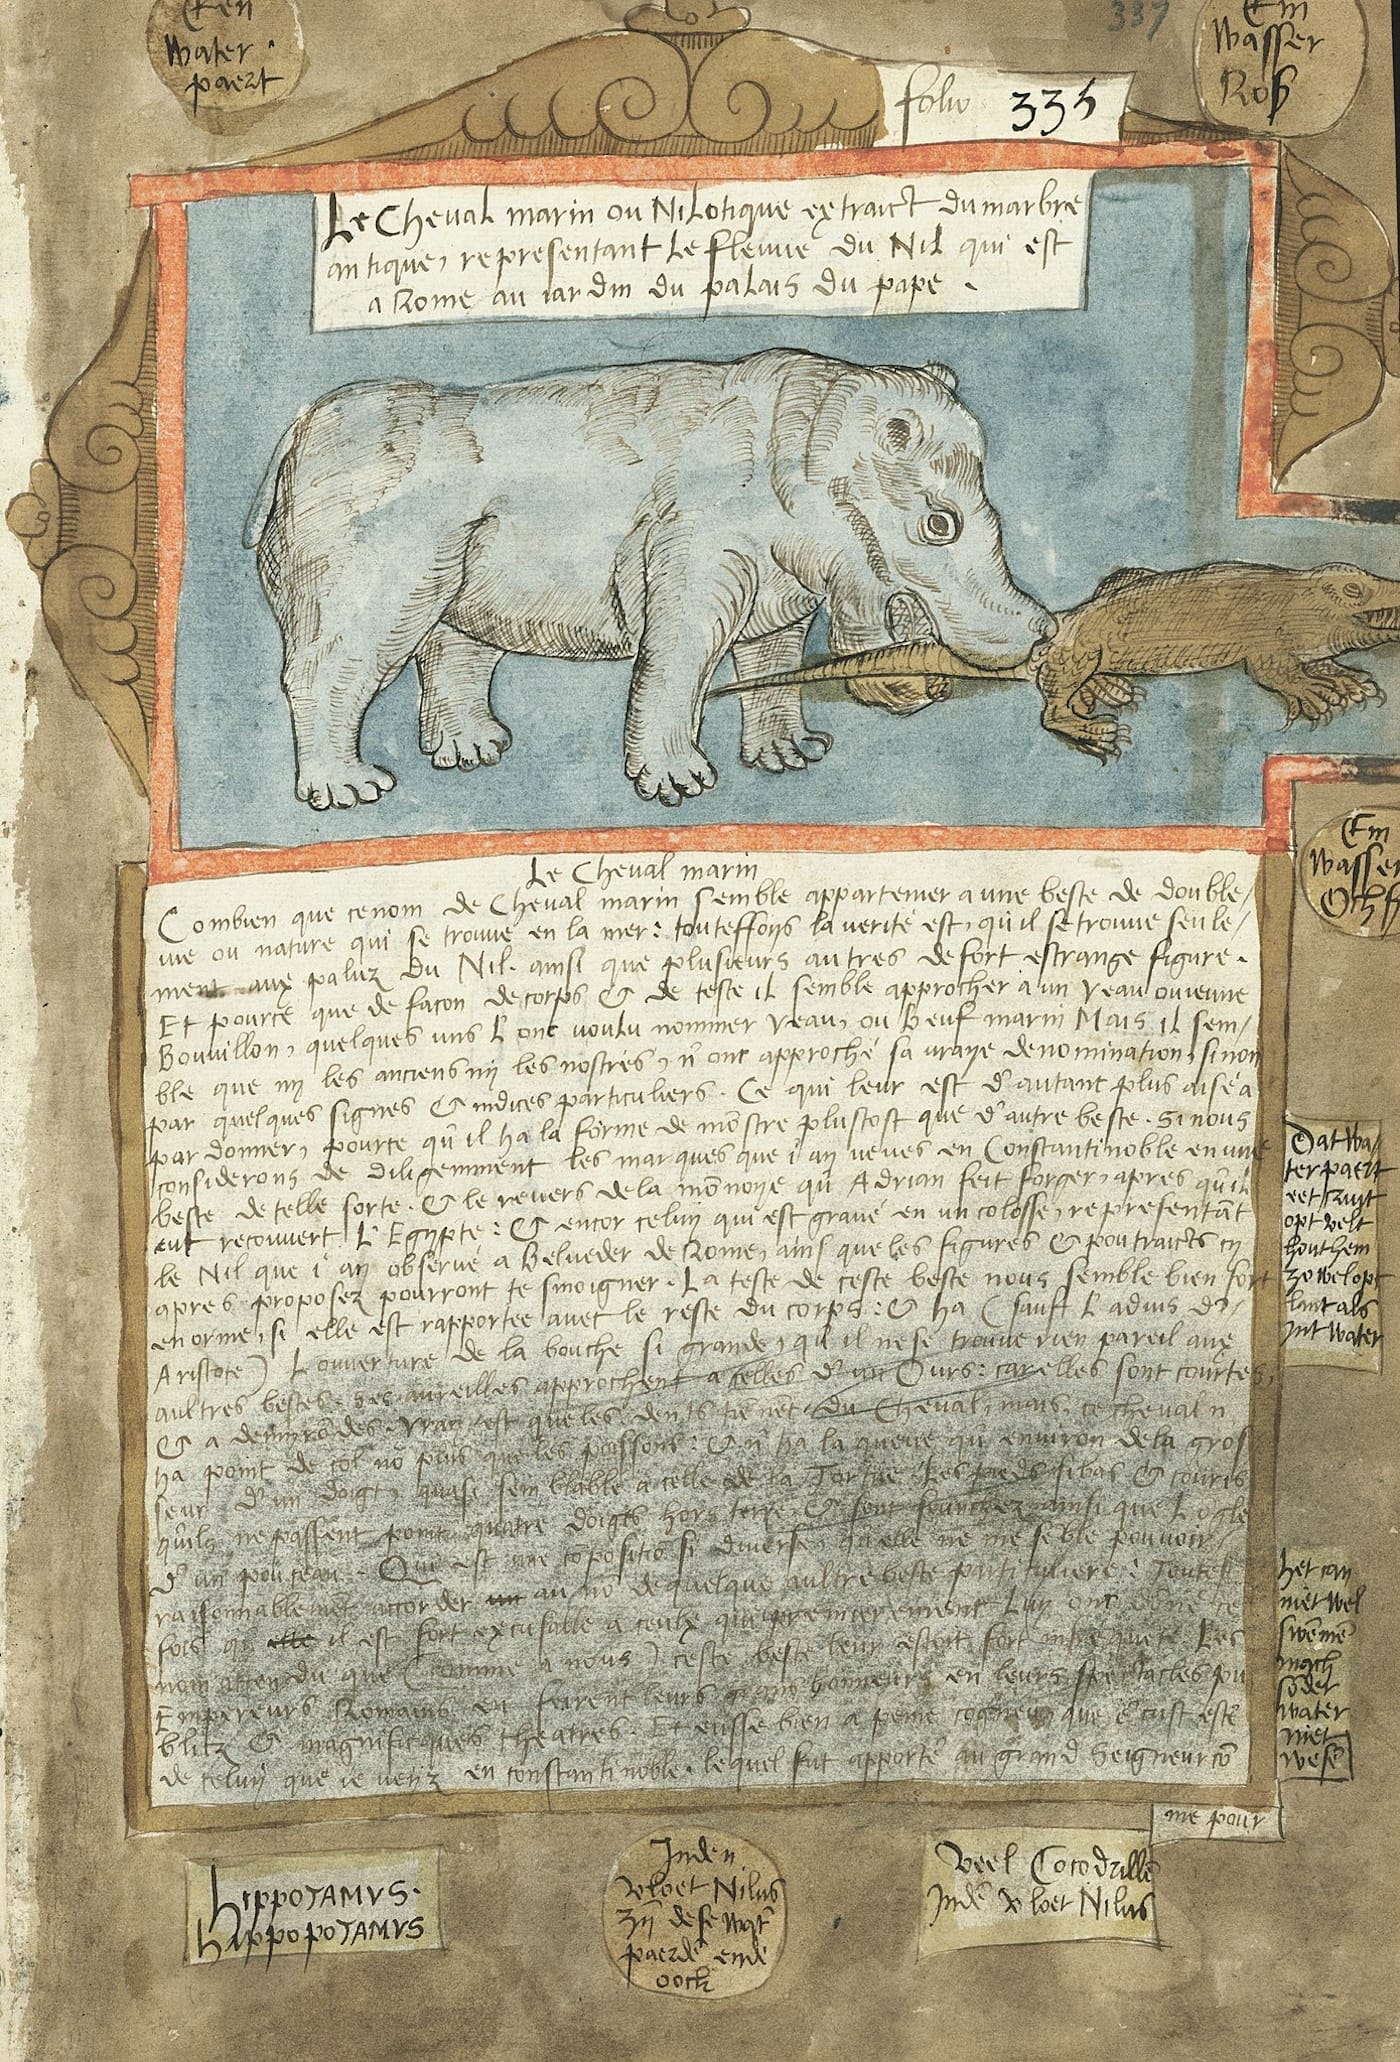 Een
water
paert
337
Ein
Wasser
Roß
folio 335
Le Cheval marin ou Nilotique extraict du marbre
antique, representant le fleuve du Nil qui est
a Rome au iardin du palais du pape.
Ein
Wasser
Ochß
Le Cheval marin
Combien que ce nom de Cheval marin semble appartenir a une beste de double/
vie ou nature qui se trouve en la mer: touteffoys la verité est, qu'il se trouve seule/
ment aux paluz du Nil. ainsi que plusieurs autres de fort estrange figure.
Et pource que de façon de corps & de teste il semble approcher a un veau ou ieune
Bouvillon, quelques uns l'ont voulu nommer veau, ou beuf marin Mais il sem/
ble que ny les anciens ny les nostres, n'ont approché sa vraye denomination, sinon
par quelques signes & indices particuliers. Ce qui leur est d'autant plus aisé a
pardonner, pource qu'il ha la forme de mõstre plustost que d'autre beste. Si nous
considerons de diligemment les marques que i'ay veues en Constantinoble en une
beste de telle sorte. & le revers de la mõnoye qu'Adrian feit forger, apres qu'il
eut recouvert l'Egypte: & encor celuy qui est gravé en un colosse, representãt
le Nil que i'ay observé a Belveder de Rome, ains que les figures & poutraicts cy
apres proposez pourront tesmoigner. La teste de ceste beste nous semble bien fort
enorme, si elle est rapportee avec le reste du corps: & ha (sauft l'advis d'/
Aristote) l'ouverture de la bouche si grande, qu'il ne se trouve rien pareil aux
aultres bestes. Ses aureilles approchent a celles d'un Ours: car elles sont courtes,
& a demy rõdes. Vray est que les dents tiẽnẽt du Cheval, mais ce cheval n'
ha point de col nõ plus que les poissons: & n'ha la queue qu'environ de la gros
seur d'un doigt, quasi semblable a celle de la Tortue. Les pieds si bas & courts
qu'ilz ne passent point quatre doigts hors terre. & sont fourchez ainsi que l'ogle
d'un pourceau. Qui est une cõpositiõ si diverse, qu'elle ne me sẽble pouvoir/
raisonnablement accorder au nõ de quelque aultre beste particuliere: Toutef
fois qu' il est fort excusable a ceulx qui premierement luy ont dõné ce
nom attendu que (comme a nous) ceste beste leur estoit fort
Les
Empereurs Romains en feirent leurs grans honneurs en leurs spectacles pu
blicz & magnificques theatres. Et eusse bien a peine cogneu, que c'eust esté
de celuy que ie veiz en Constantinoble. lequel fut apporté au grand Seigneur cõ
me pour
Dat wa/
terpaert
eet cruyt
opt velt
houthem
zo wel opt
lant als
int water
het can
niet wel
swẽmẽ
mach
sõder
water
niet
wesẽ
hippotamus.
hippopotamus
Inden
vloet Nilus
zijn dese wat'
paerdẽ ende
oock
Veel Cocodrillẽ
Indẽ vloet Nilus